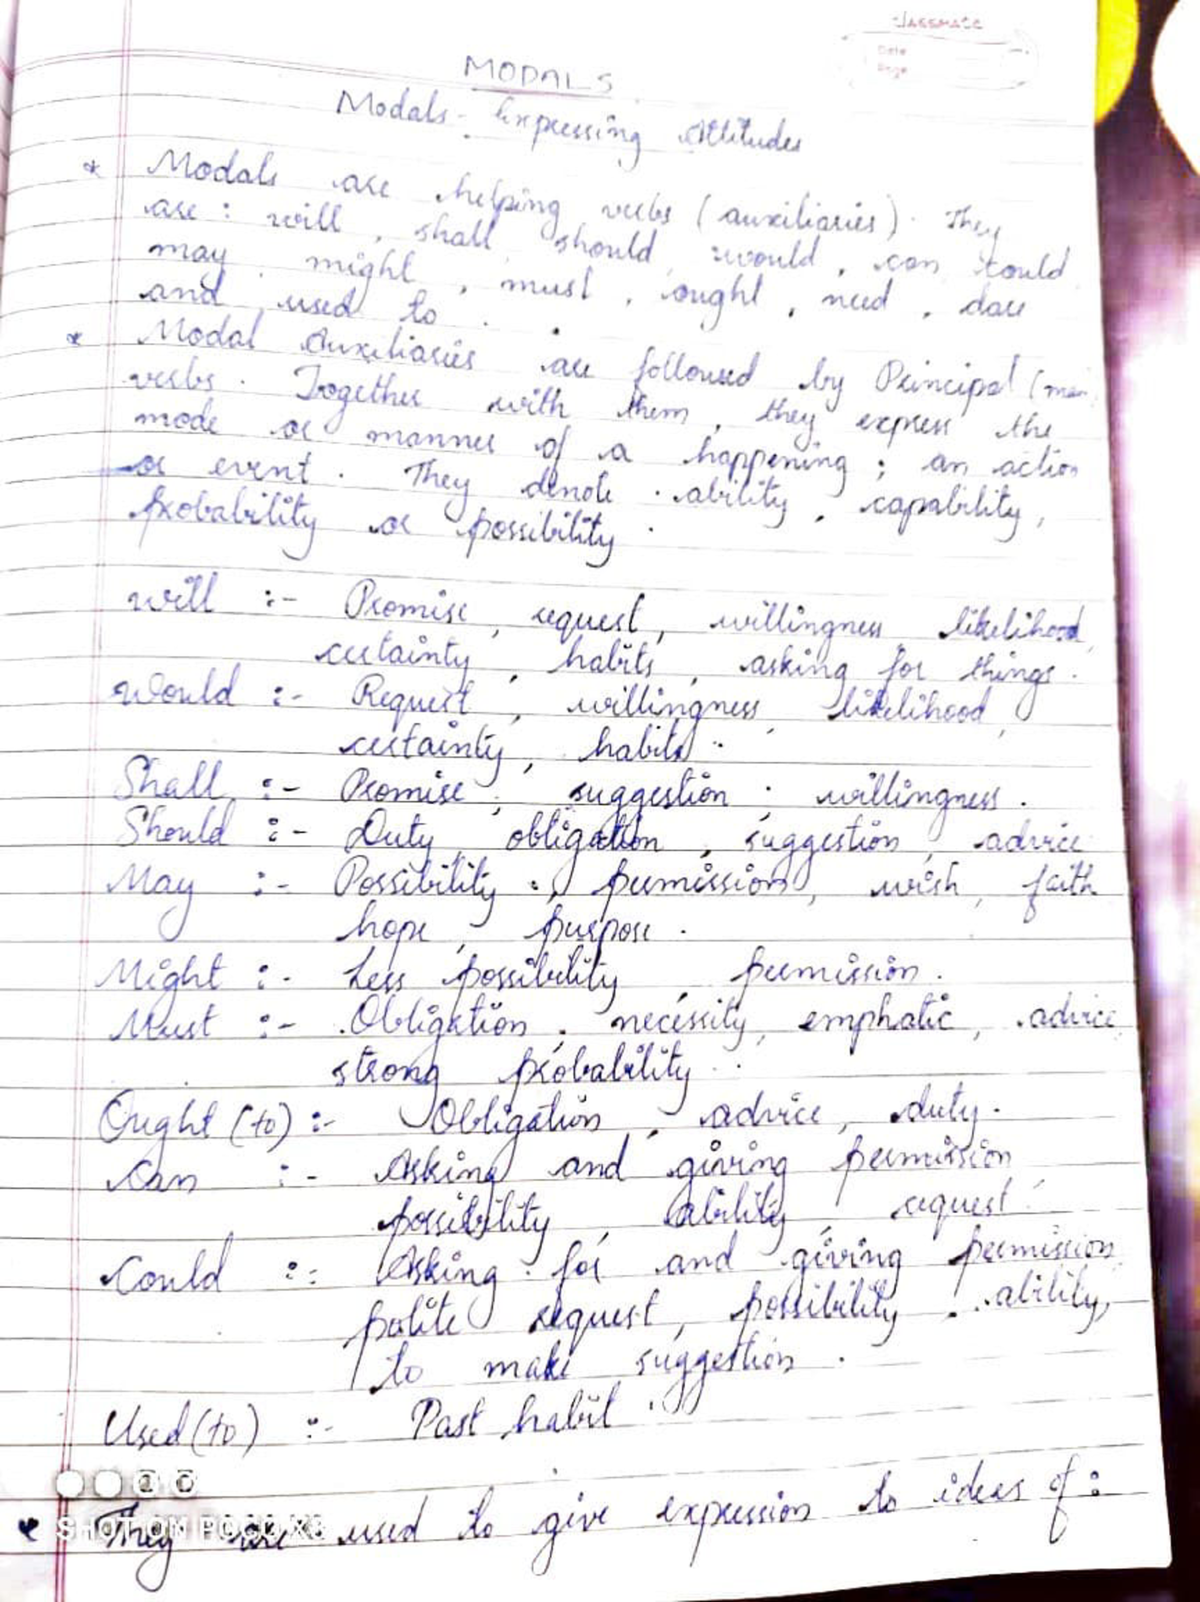 classmate
Date
Page
MODALS
Modals - Expressing Attitudes
* Modals are helping verbs (auxiliaries). They
are : will, shall, should, would, can, could,
may, might, must, ought, need, dare
and used to.
* Modal Auxiliaries are followed by Principal (main
verbs. Together with them, they express the
mode or manner of a happening; an action
or event. They denote ability, capability,
probability or possibility.
will :- Promise, request, willingness likelihood,
certainty, habits, asking for things.
Would :- Request, willingness, likelihood,
certainty, habits.
Shall :- Promise, suggestion, willingness.
Should :- Duty, obligation, suggestion, advice
May :- Possibility, permission, wish, faith
hope, purpose.
Might :- Less possibility, permission.
Must :- Obligation, necessity, emphatic, advice,
strong probability.
Ought (to) :- Obligation, advice, duty.
Can :- Asking and giving permission
possibility, ability, request.
Could :- Asking for and giving permission,
polite request, possibility, ability,
to make suggestion.
Used (to) :- Past habit.
* They are used to give expression to ideas of :
SHOT ON POCO X3